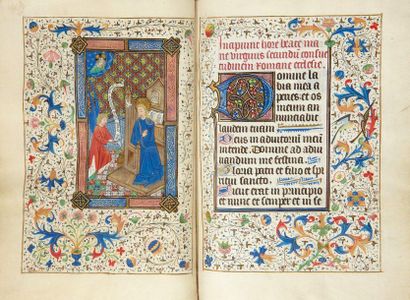 Incipiunt hore beate ma
rie virginis secundu consue
tudinem Romane ecclesie.
Domine la
bia mea a
peries et os
meum an
nunciabit
laudem tuam
Deus in adiutoriu mei
intende. Domine ad adiu
vandum me festina.
Gloria patri et filio et spi
ritui sancto.
Sicut erat in principio
et nunc et semper et in se